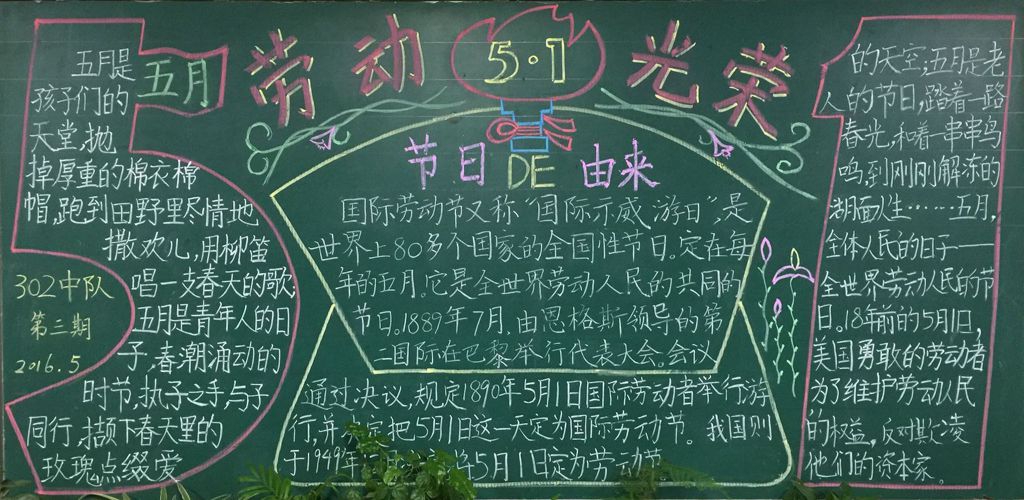 劳动 5·1 光荣
五月
五月是
孩子们的
天堂,抛
掉厚重的棉衣棉
帽,跑到田野里尽情地
撒欢儿,用柳笛
唱一支春天的歌;
五月是青年人的日
子,春潮涌动的
时节,执子之手,与子
同行,撷下春天里的
玫瑰点缀爱
302中队
第三期
2016.5
节日DE由来
国际劳动节又称“国际示威游日”,是
世界上80多个国家的全国性节日。定在每
年的五月。它是全世界劳动人民的共同的
节日。1889年7月,由恩格斯领导的第
二国际在巴黎举行代表大会。会议
通过决议,规定1890年5月1日国际劳动者举行游
行,并决定把5月1日这一天定为国际劳动节。我国则
于1949年 5月1日定为劳动节。
的天空;五月是老
人的节日,踏着一路
春光,和着一串串鸟
鸣,到刚刚解冻的
湖面人生……五月,
全体人民的日子——
全世界劳动人民的节
日。18年前的5月1日,
美国勇敢的劳动者
为了维护劳动人民
的权益,反对欺凌
他们的资本家。